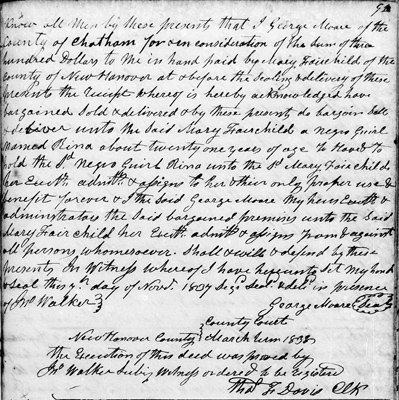 Know all Men by these presents that I George Moore of the
County of Chatham for & in consideration of the sum of three
hundred Dollars to me in hand paid by Mary Fairchild of the
County of New Hanover at & before the sealing & delivery of these
presents the receipt whereof is hereby acknowledged have
bargained Sold & delivered & by these presents do bargain Sell
& deliver unto the Said Mary Fairchild a Negro Guirl
Named Rina about twenty one years of age To Have & To
hold the Sd. Negro Guirl Rina unto the Sd. Mary Fairchild
her Exrs. admrs. & assigns to her & their only proper use &
benefit forever & I the Said George Moore My heirs Exrs. &
administrators the Said bargained premises unto the Said
Mary Fairchild her Exrs. admrs. & assigns from & against
all persons whomsoever. Shall & will & defend by these
presents In Witness whereof I have hereunto Set My hand
& Seal this day of Novr. 1837 Sigd. Seald. & deld. in presence
of Jno. Walker }
George Moore {Seal}
County Court
New Hanover County } March Term 1838
the Execution of this deed was proved by
Jno. Walker Subg. Witness ordered to be registered
Thos. F. Davis Clk